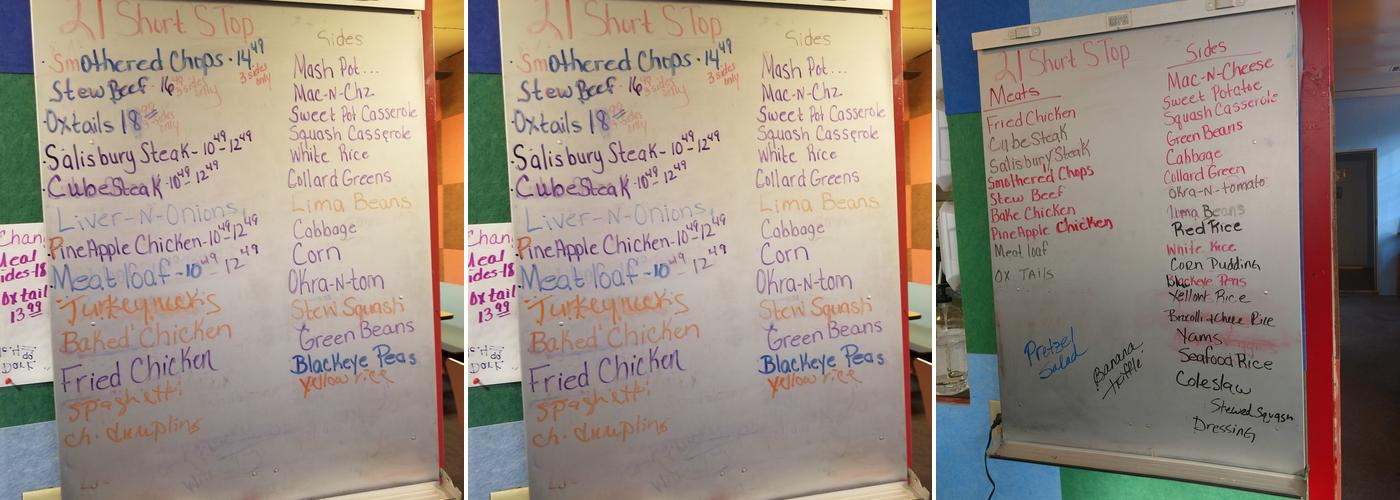 21 Short STop
Sides
Smothered Chops · 14.49
3 sides only
Stew Beef · 16.49
3 sides only
Oxtails 18
3 sides only
Salisbury Steak - 10.49 12.49
Cube Steak · 10.49 12.49
Liver-N-Onions
PineApple Chicken - 10.49 12.49
Meat loaf - 10.49 12.49
Turkey necks
Baked Chicken
Fried Chicken
Spaghetti
ch. dumplins
Mash Pot...
Mac-N-Chz
Sweet Pot Casserole
Squash Casserole
White Rice
Collard Greens
Lima Beans
Cabbage
Corn
Okra-N-tom
Stew Squash
Green Beans
Blackeye Peas
Yellow rice
Chan
Meal
ides-18
Ox tail
13.99
21 Short STop
Sides
Smothered Chops · 14.49
3 sides only
Stew Beef · 16.49
3 sides only
Oxtails 18
3 sides only
Salisbury Steak - 10.49 12.49
Cube Steak · 10.49 12.49
Liver-N-Onions
PineApple Chicken - 10.49 12.49
Meat loaf - 10.49 12.49
Turkey necks
Baked Chicken
Fried Chicken
Spaghetti
ch. dumplins
Mash Pot...
Mac-N-Chz
Sweet Pot Casserole
Squash Casserole
White Rice
Collard Greens
Lima Beans
Cabbage
Corn
Okra-N-tom
Stew Squash
Green Beans
Blackeye Peas
Yellow rice
Chan
Meal
ides-18
Ox tail
13.99
21 Short STop
Meats
Fried Chicken
Cube Steak
Salisbury Steak
Smothered Chops
Stew Beef
Bake Chicken
PineApple Chicken
Meat loaf
OX TAils
Pretzel
Salad
Banana
triffle
Sides
Mac-N-Cheese
Sweet Potatoe
Squash Casserole
Green Beans
Cabbage
Collard Green
Okra-N-tomato
lima Beans
Red Rice
White Rice
Corn Pudding
Blackeye Peas
Yellow Rice
Brocolli + Chese Rice
Yams
Seafood Rice
Coleslaw
Stewed Squash
Dressing